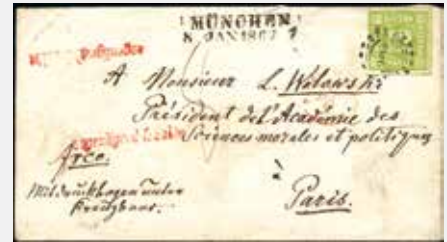 MÜNCHEN
8 JAN 1867
A Monsieur L. Wolowski
Président de l'Académie des
Sciences morales et politiques
frco.
à
Paris.
Mit druckbogen unter
Kreuzband.